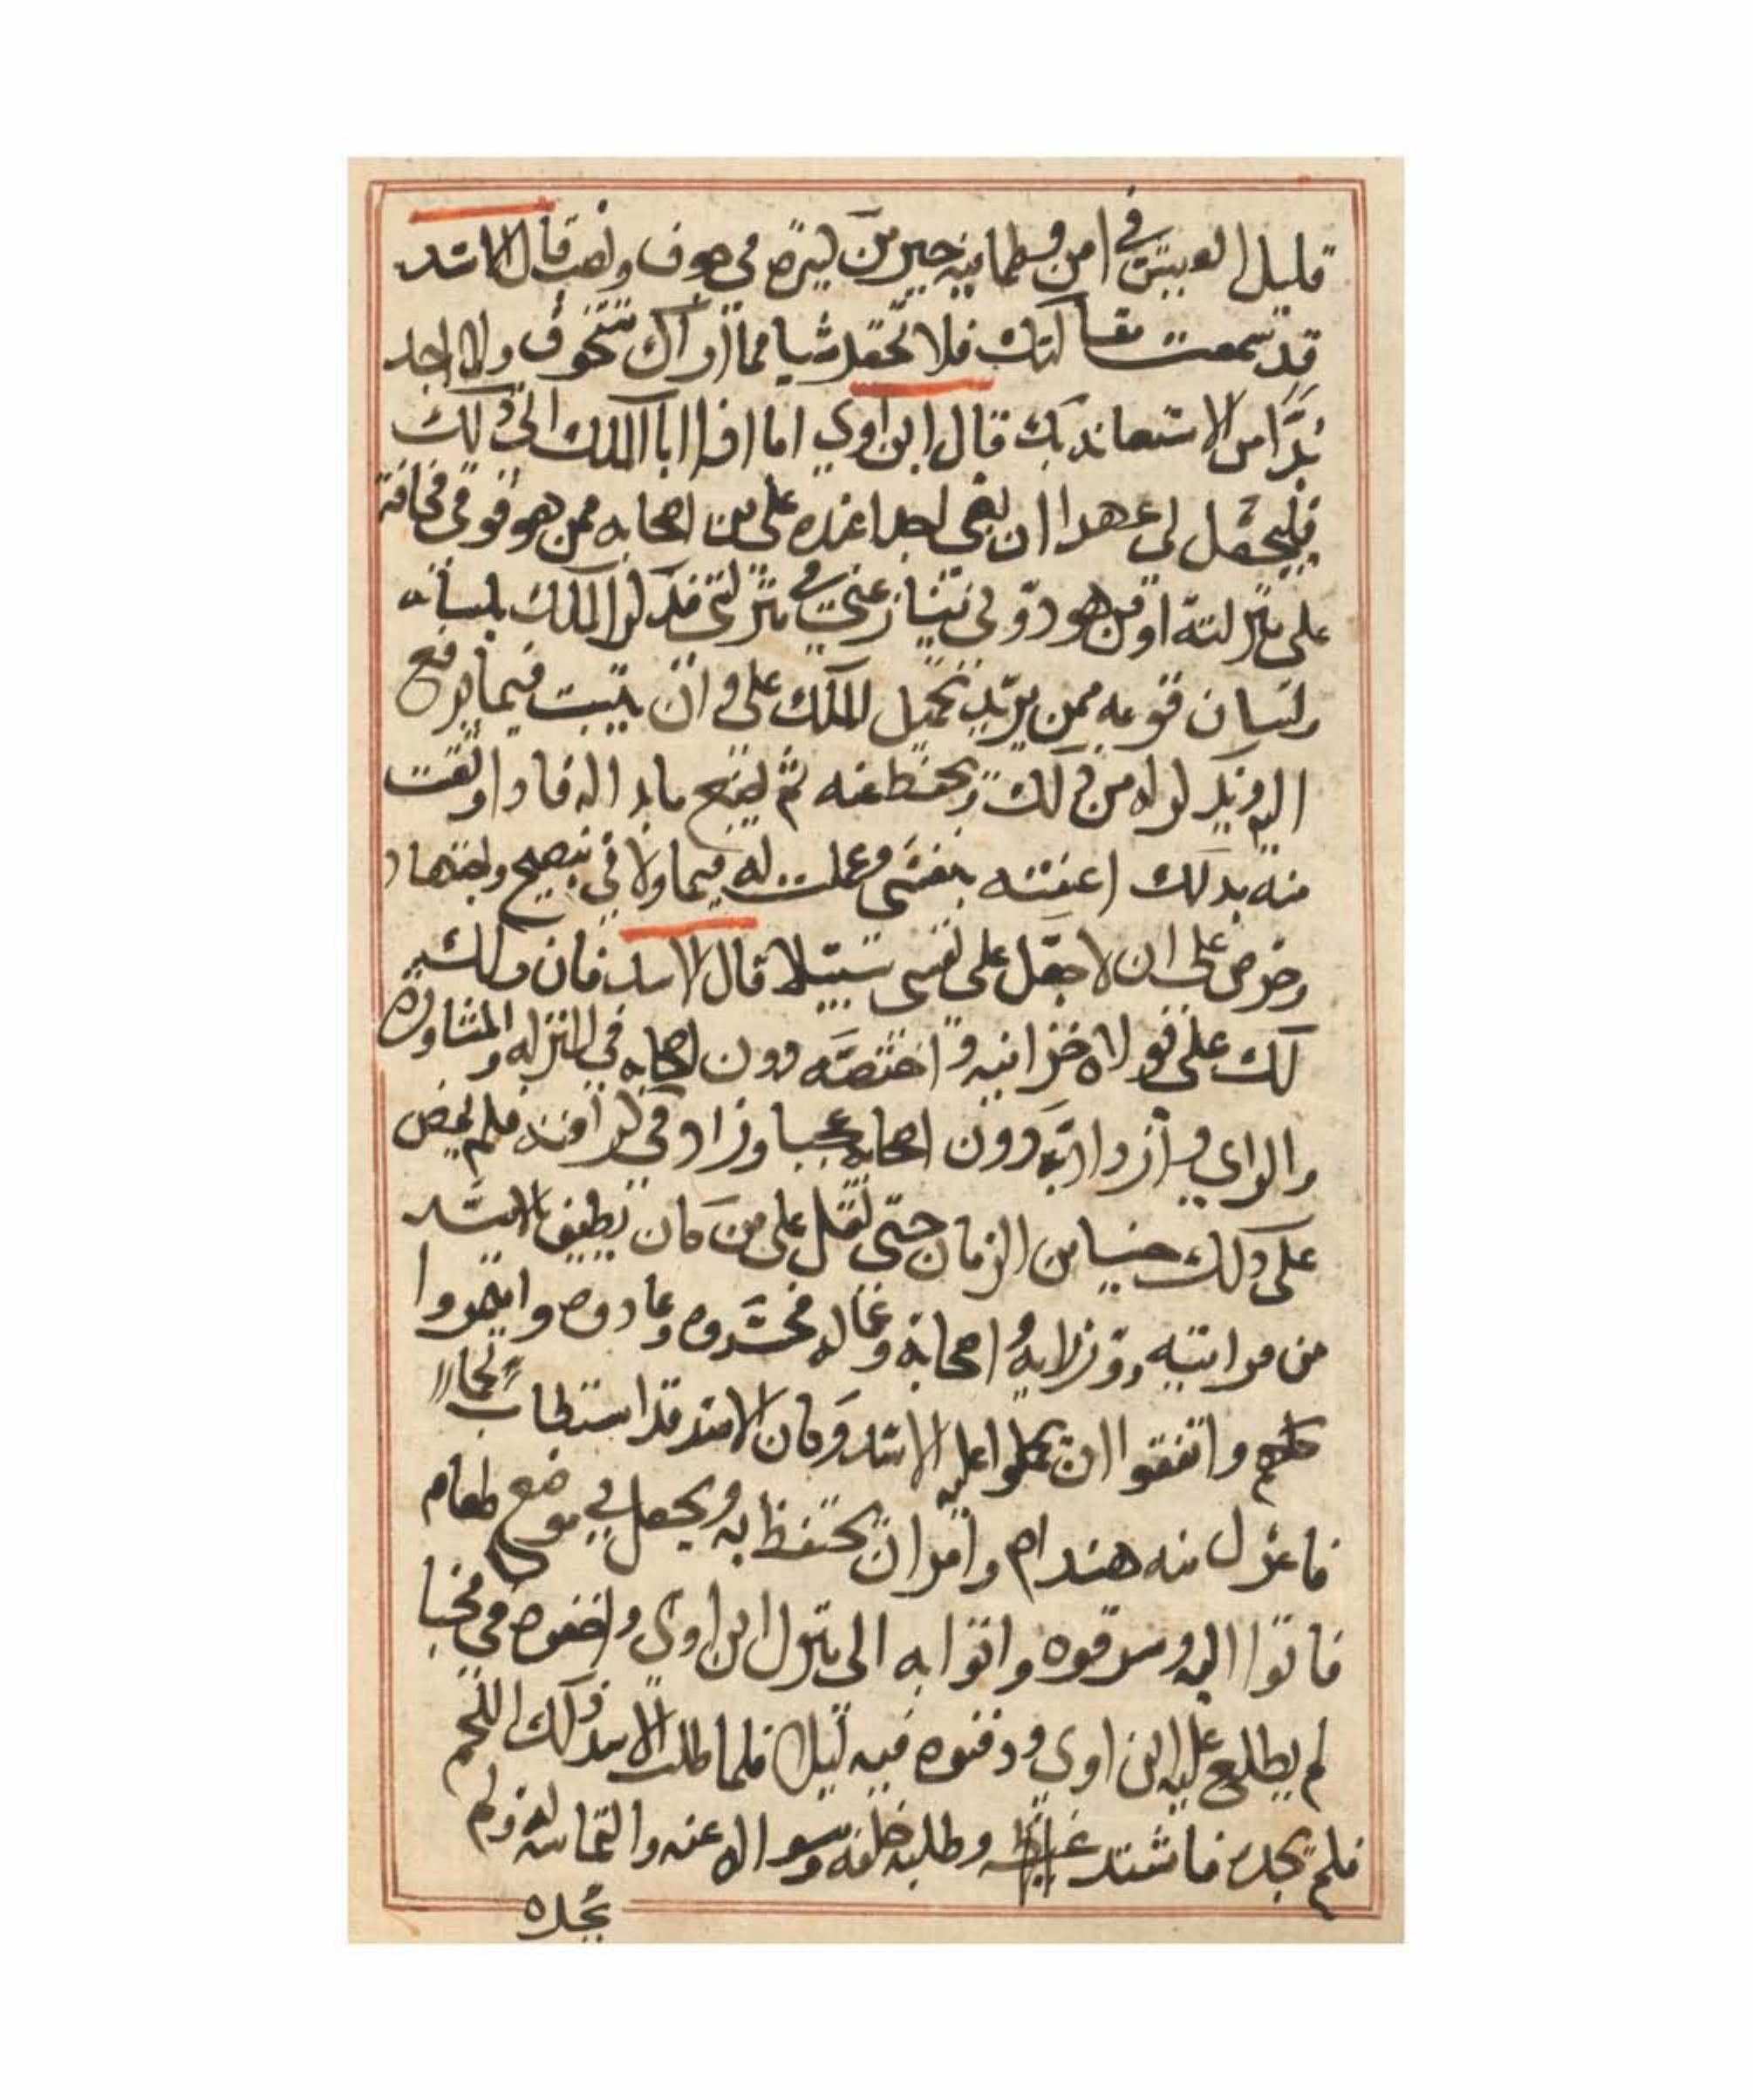 قليل العيش في امن وطمانينه خير من كثيره في خوف ونصب قال الاسد
قد سمعت مقالتك فلا تخف شيا مما اراك تتخوف ولا اجد
بدا من الاستعانه بك قال ابن اوي اما اذا ابا الملك الى ذلك
فليجعل لي عهدا ان بغي احدا عنده علي من اصحابه ممن هو فوقي مخافة
على منزلته او من هو دوني ينازعني في منزلتي فذكر الملك بلسانه
ولسان قومه ممن يريد تحميل الملك علي ان يثبت فيما يرفع
اليه ويذكر له من ذلك ويحفظ عنه ثم ليضع ما بدا له فاذا وثقت
منه بذلك اعنته بنفسي وعملت له فيما ولاني بنصح واجتهاد
وحرص على ان لا اجعل على نفسي سبيلا قال الاسد فان ذلك
لك علي فولاه خزانيه واختصه دون اصحابه في المنزله والمشاوره
والراي وازداد به دون اصحابه عجبا وزاد في كرامته فلم يمض
على ذلك حينا من الزمان حتى ثقل على من كان يطيف بالاسد
من قرابتيه ووزرايه واصحابه وعماله فحسدوه وعادوه وايتمروا
كلهم واتفقوا ان يحملوا عليه الاسد وكان الاسد قد استطاب لحما
فاعزل منه هندام وامر ان يحتفظ به ويجعل في موضع طعام
فاتوا اليه وسرقوه واتوا به الى منزل ابن اوي واخفوه في مخبا
لم يطلع عليه ابن اوي ودفنوه فيه ليلا فلما طلب الاسد ذلك اللحم
فلم يجده فاشتد وطلبه خلفه وسواله عنه والتماسه ولم
يجده